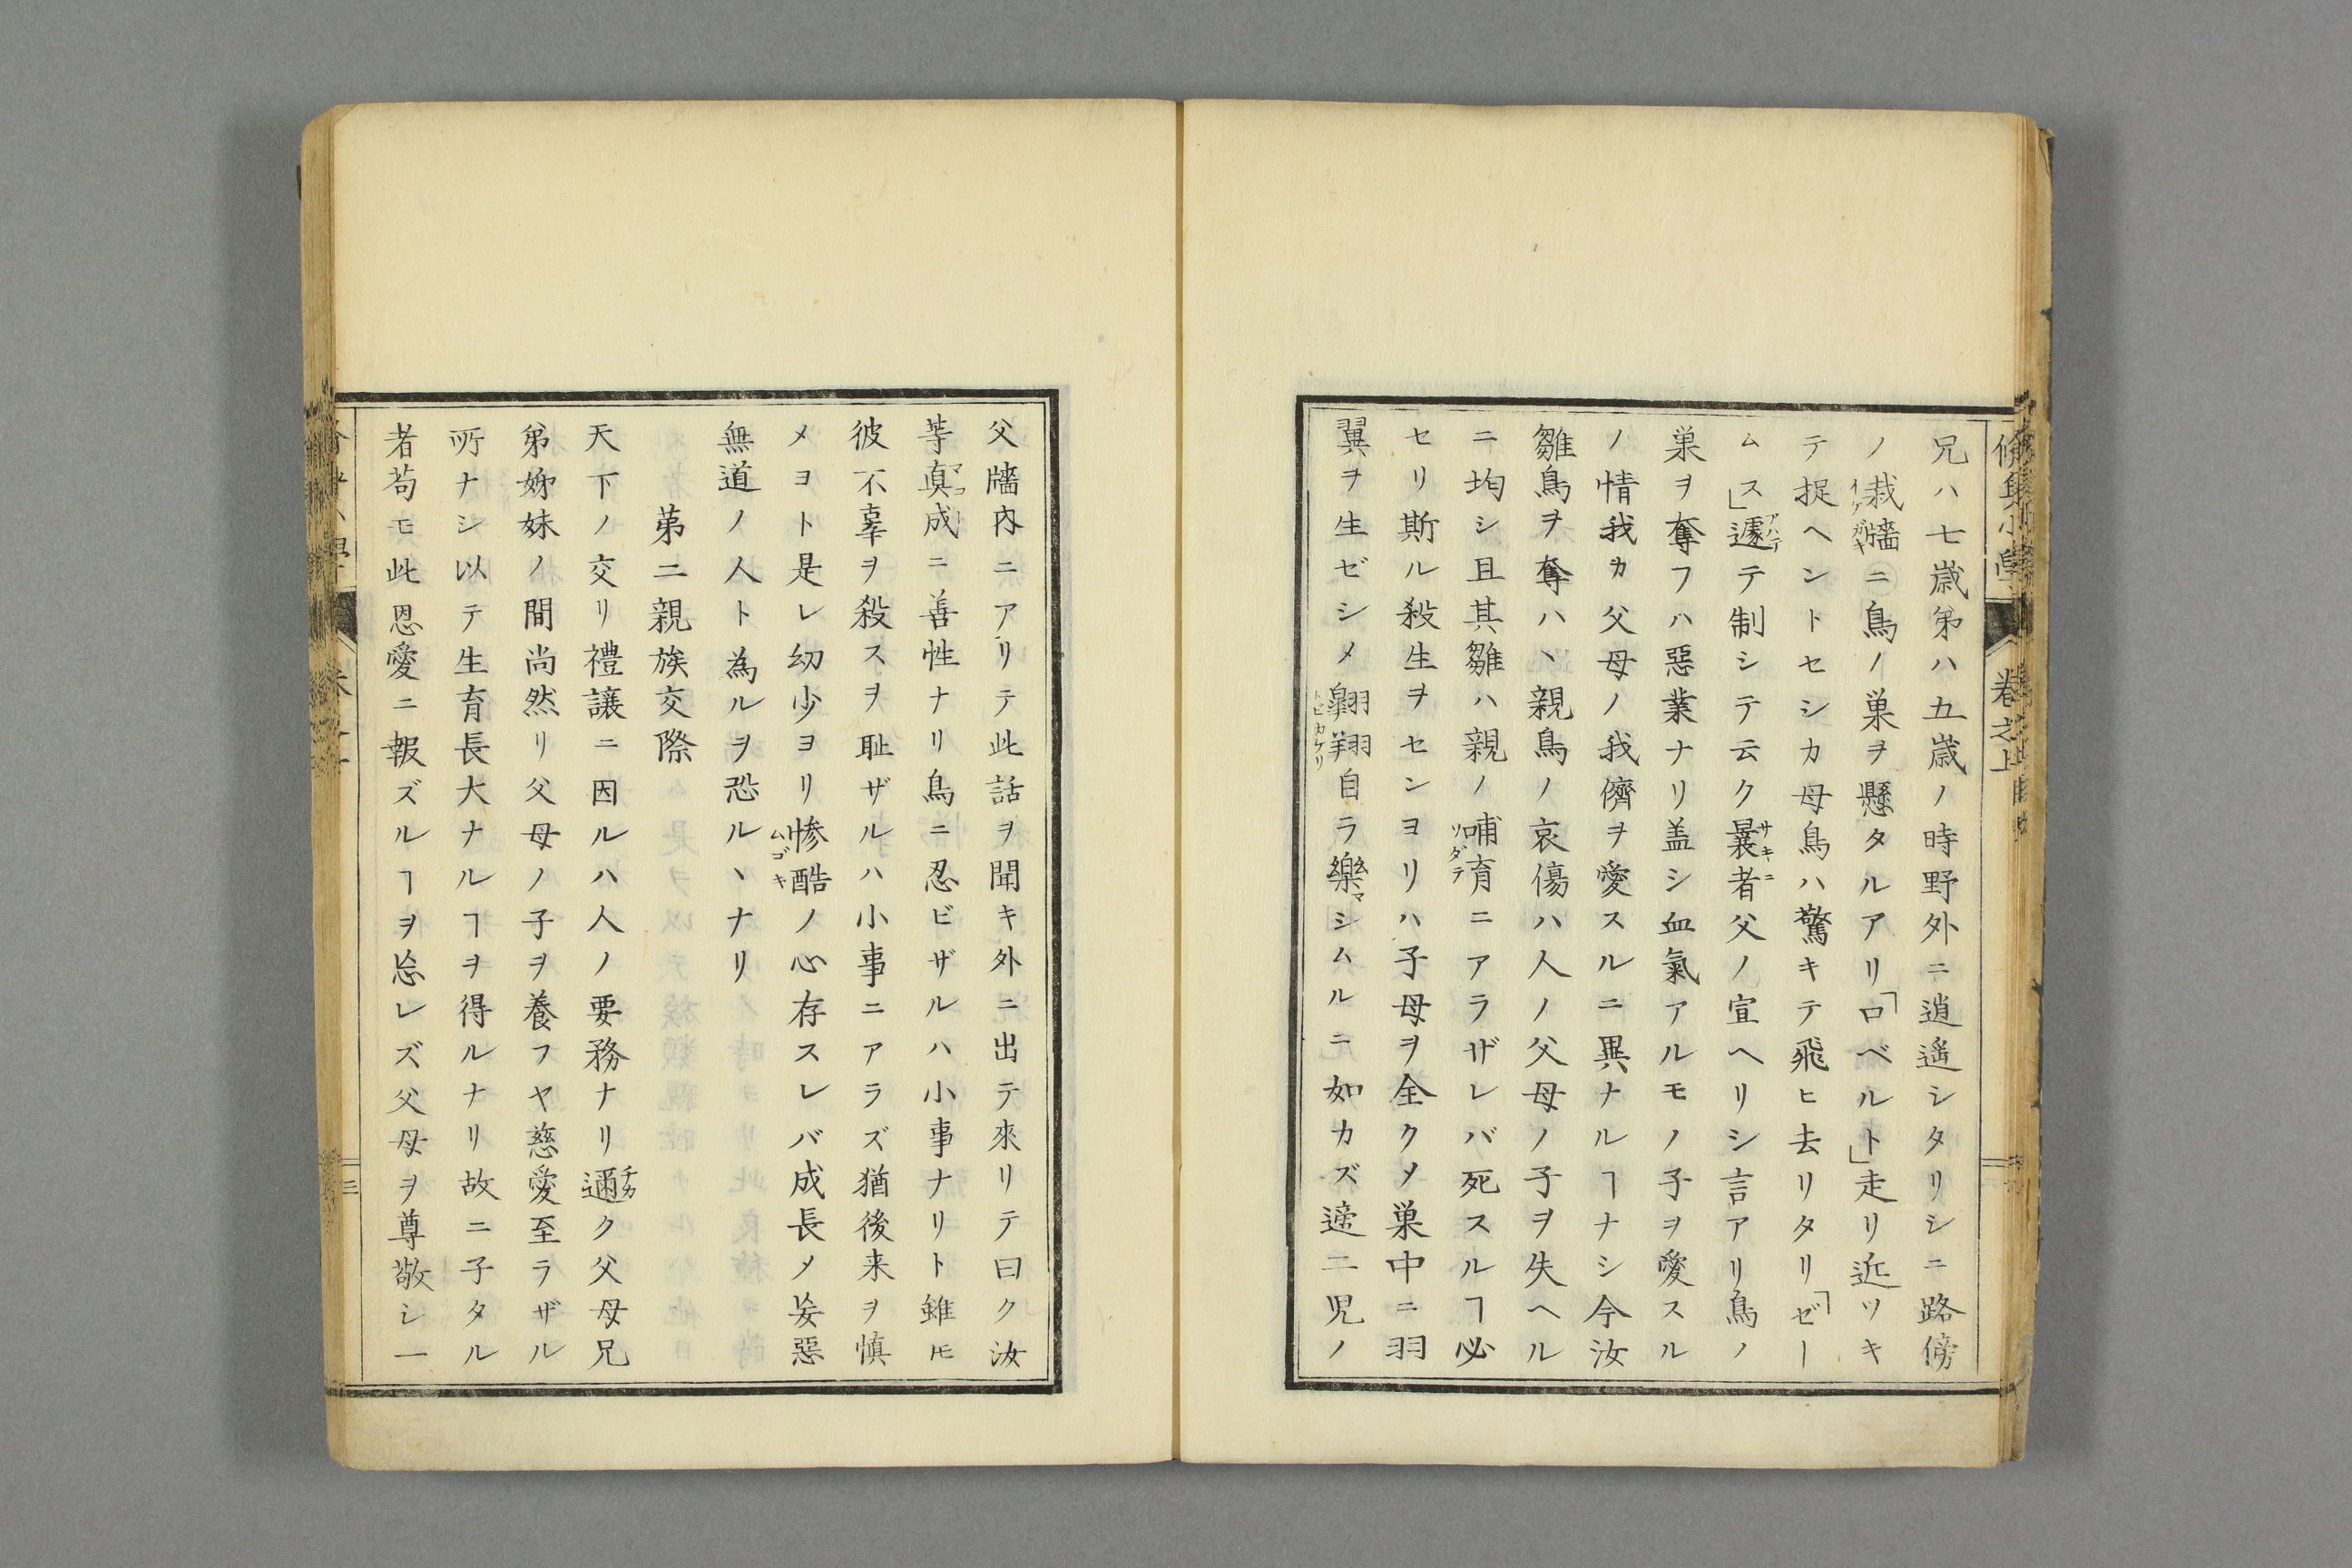 兄ハ七歳弟ハ五歳ノ時野外ニ逍遥シタリシニ路傍
ノ栽牆ニ鳥ノ巣ヲ懸タルアリ「ロベルト」走リ近ツキ
テ捉ヘントセシカ母鳥ハ驚キテ飛ヒ去リタリ「ゼー
ムス」遽テ制シテ云ク曩者父ノ宣ヘリシ言アリ鳥ノ
巣ヲ奪フハ惡業ナリ盖シ血氣アルモノ子ヲ愛スル
ノ情我カ父母ノ我儕ヲ愛スルニ異ナルヿナシ今汝
雛鳥ヲ奪ハヽ親鳥ノ哀傷ハ人ノ父母ノ子ヲ失ヘル
ニ均シ且其雛ハ親ノ哺育ニアラザレバ死スルヿ必
セリ斯ル殺生ヲセンヨリハ子母ヲ全クメ巣中ニ羽
翼ヲ生ゼシメ翺翔自ラ樂マシムルニ如カズ遂二児ノ
父牆内ニアリテ此話ヲ聞キ外ニ出テ來リテ曰ク汝
等真成ニ善性ナリ鳥ニ忍ビザルハ小事ナリト雖𪜈
彼不辜ヲ殺スヲ耻ザルハ小事ニアラズ猶後来ヲ慎
メヨト是レ幼少ヨリ惨酷ノ心存スレバ成長メ妄惡
無道ノ人ト為ルヲ恐ルヽナリ
第二親族交際
天下ノ交リ禮讓ニ因ルハ人ノ要務ナリ邇ク父母兄
弟姉妹ノ間尚然リ父母ノ子ヲ養フヤ慈愛至ラザル
所ナシ以テ生育長大ナルヿヲ得ルナリ故ニ子タル
者苟モ此恩愛ニ報ズルヿヲ忘レズ父母ヲ尊敬シ一